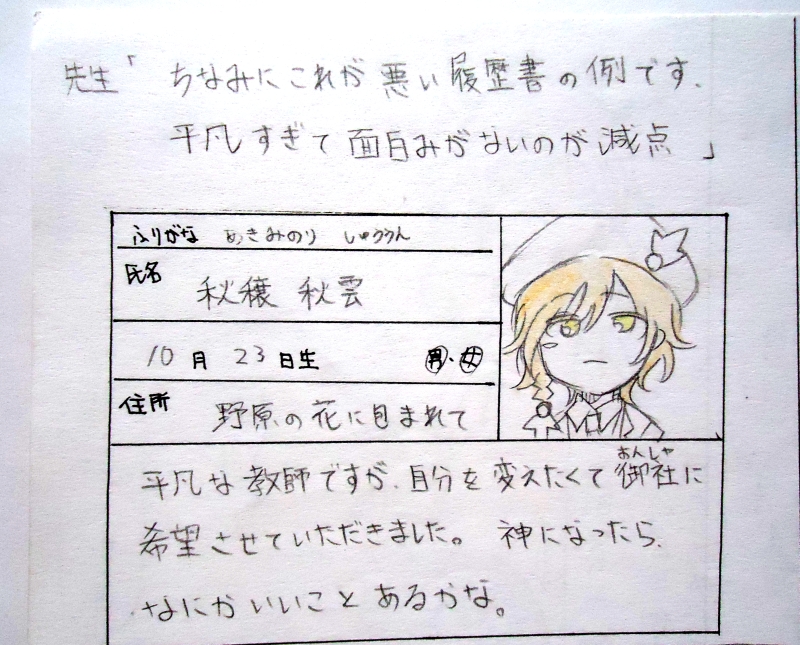 先生「ちなみにこれが悪い履歴書の例です.
平凡すぎて面白みがないのが減点」
ふりがな あきみのり しゅううん
氏名 秋穣 秋雲
10月23日生 男・女
住所 野原の花に包まれて
おんしゃ
平凡な教師ですが、自分を変えたくて御社に
希望させていただきました。 神になったら、
なにかいいことあるかな。